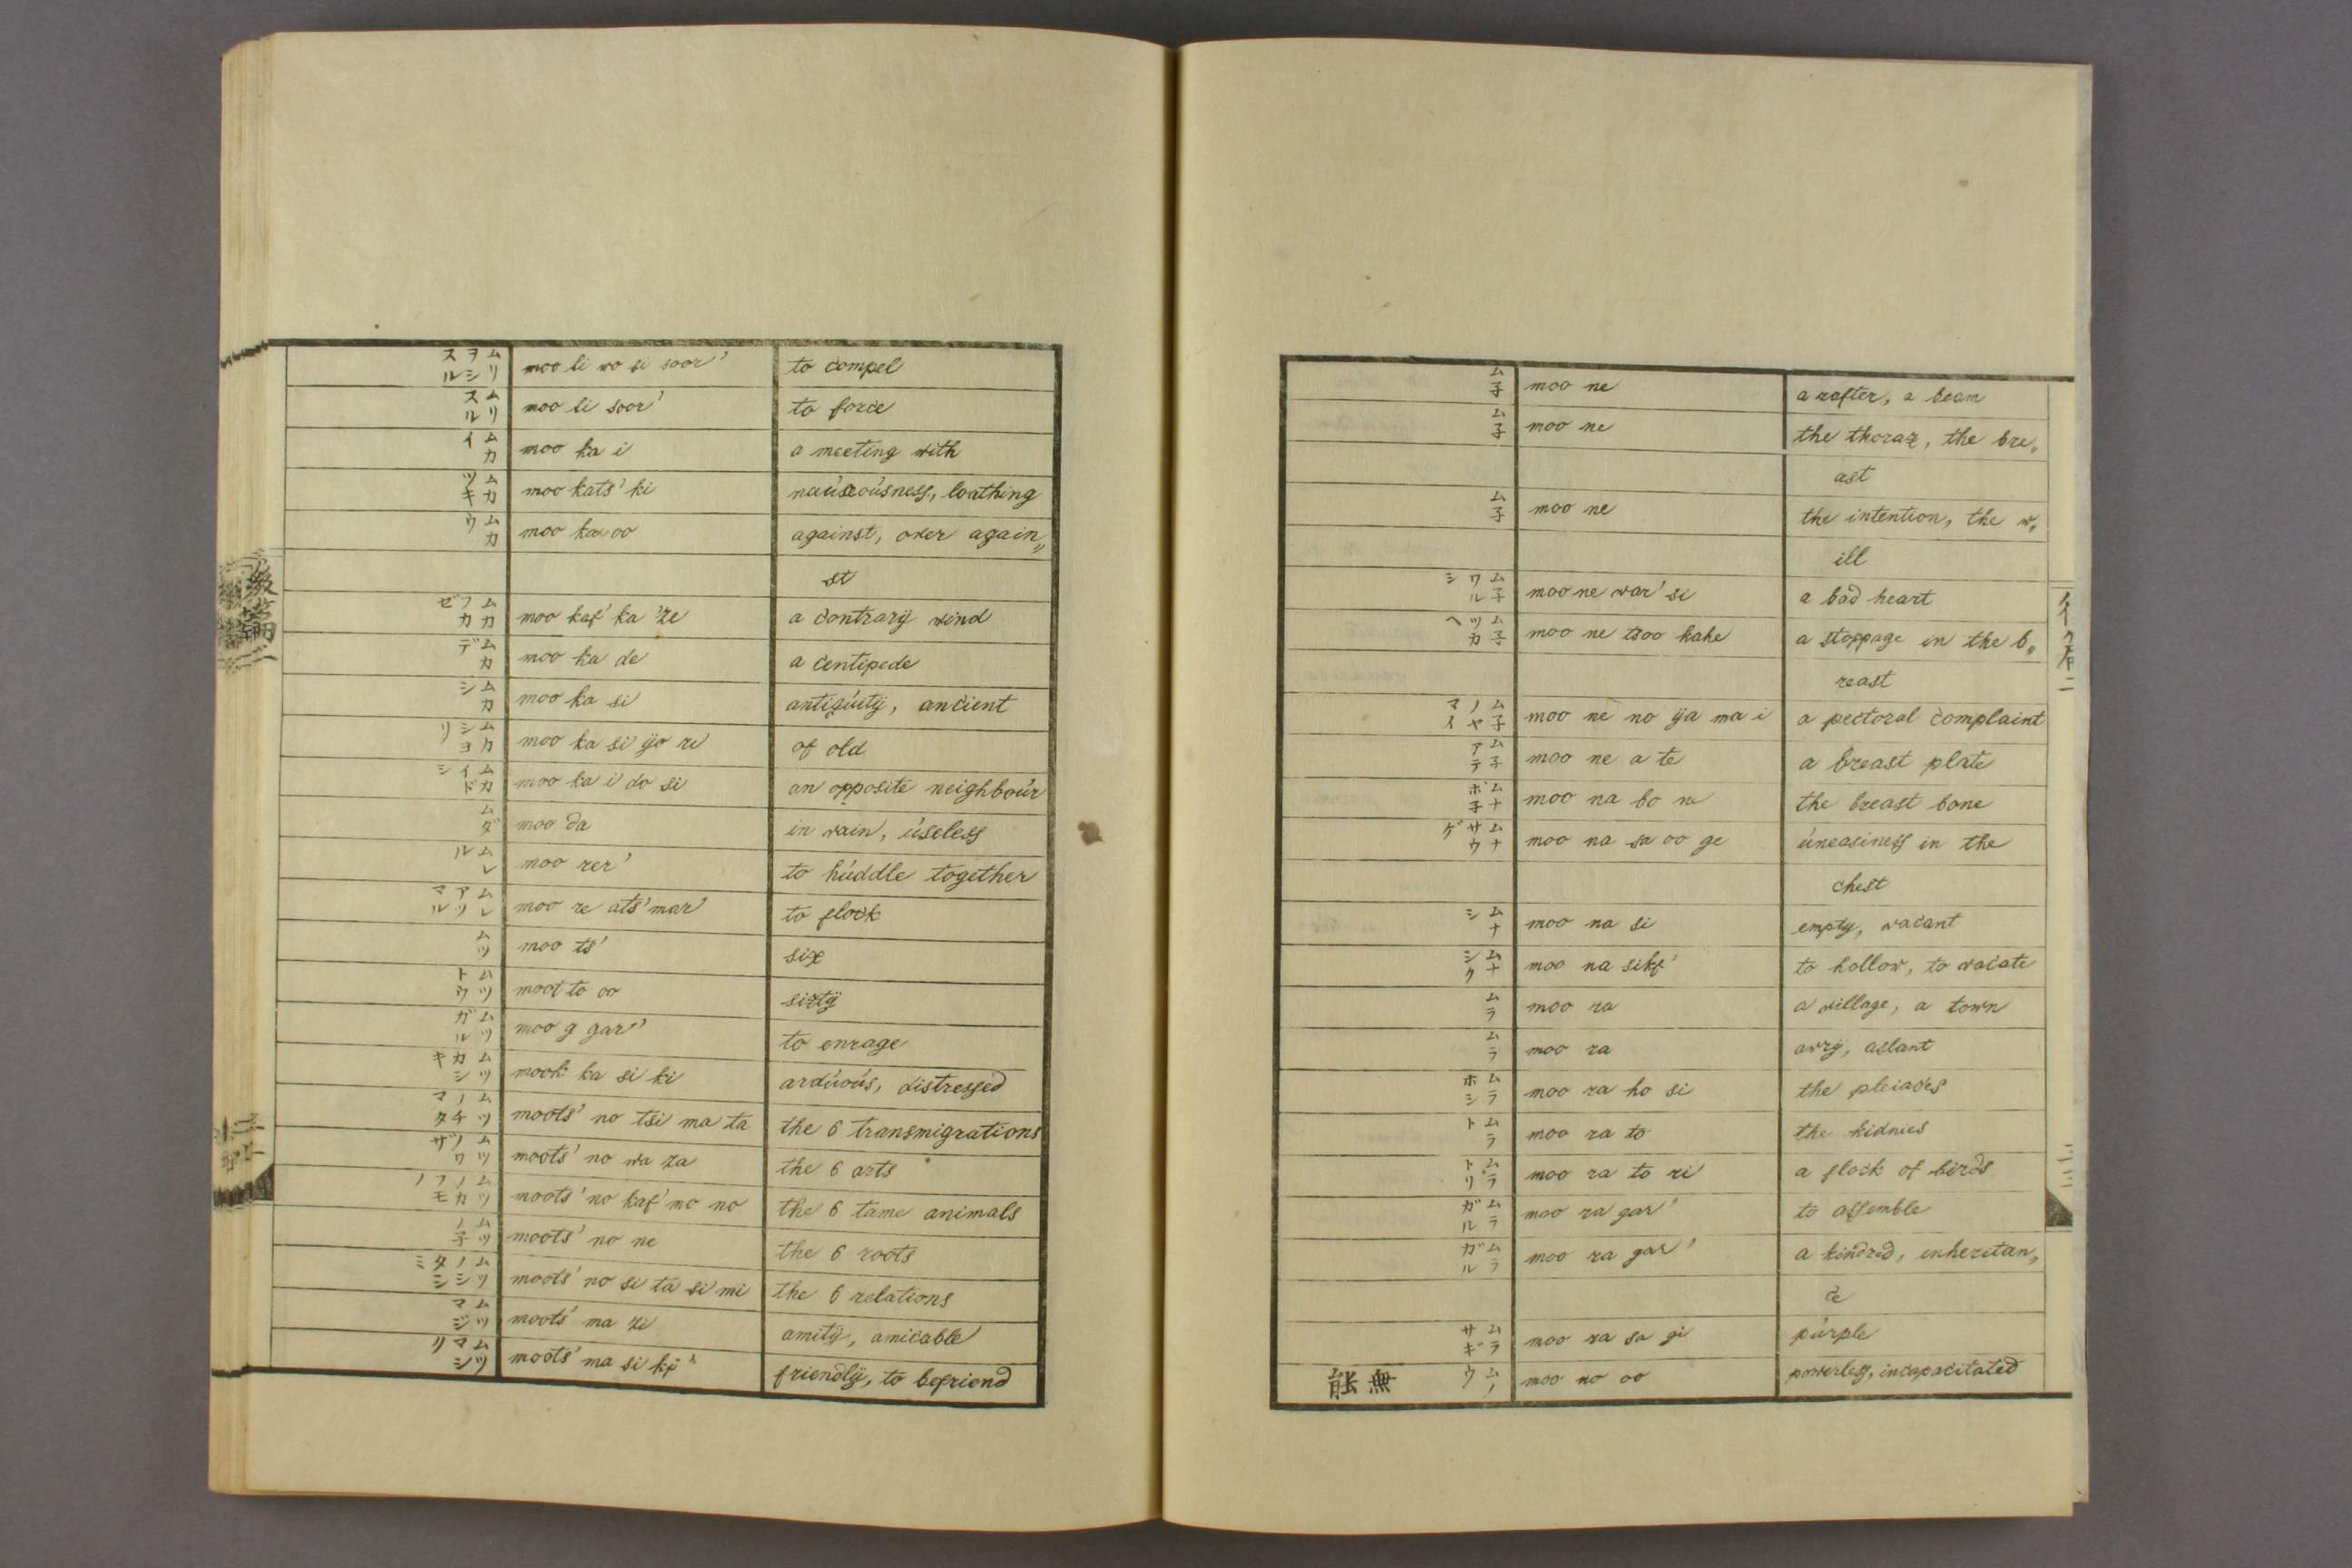 ムリヲシスル moo li wo si soor' to compel
ムリスル moo li soor' to force
ムカイ moo ka i a meeting with
ムカツキ moo kats' ki naúseoúsness, loathing
ムカウ moo ka oo against, over again„
st
ムカフカゼ moo kaf' ka ze a contrarÿ wind
ムカデ moo ka de a centipede
ムカシ moo ka si antiqúitÿ, ancient
ムカシヨリ moo ka si ÿo ri of old
ムカイドシ moo ka i do si an opposite neighboúr
ムダ moo da in vain, úseless
ムレル moo rer' to húddle together
ムレアツマル moo re ats' mar' to flock
ムツ moo ts' six
ムツトウ moot to oo sixtÿ
ムツガル moo g gar' to enrage
ムツカシキ mook ka si ki ardúoús, distressed
ムツノチマタ moots' no tsi ma ta the 6 transmigrations
ムツノワザ moots' no wa za the 6 arts
ムツノカフモノ moots' no kaf' mo no the 6 tame animals
ムツノ子 moots' no ne the 6 roots
ムツノシタシミ moots' no si ta si mi the 6 relations
ムツマジ moots' ma zi amitÿ, amicable
ムツマシリ moots' ma si kf' friendlÿ, to befriend
ム子 moo ne a rafter, a beam
ム子 moo ne the thorax, the bre„
ast
ム子 moo ne the intention, the w„
ill
ム子ワルシ moo ne war' si a bad heart
ム子ツカヘ moo ne tsoo kahe a stoppage in the b„
reast
ム子ノヤマイ moo ne no ÿa ma i a pectoral complaint
ム子アテ moo ne a te a breast plate
ムナボ子 moo na bo ne the breast bone
ムナサウゲ moo na sa oo ge úneasiness in the
chest
ムナシ moo na si empty, vacant
ムナシク moo na sikf' to hollow, to vacate
ムラ moo ra a village, a town
ムラ moo ra awrÿ, aslant
ムラホシ moo ra ho si the pleiades
ムラト moo ra to the kidnies
ムラトリ moo ra to ri a flock of birds
ムラガル moo ra gar' to assemble
ムラガル moo ra gar' a kindred, inheritan„
ce
ムラサギ moo ra sa gi púrple
無能 ムノウ moo no oo powerless, incapacitated